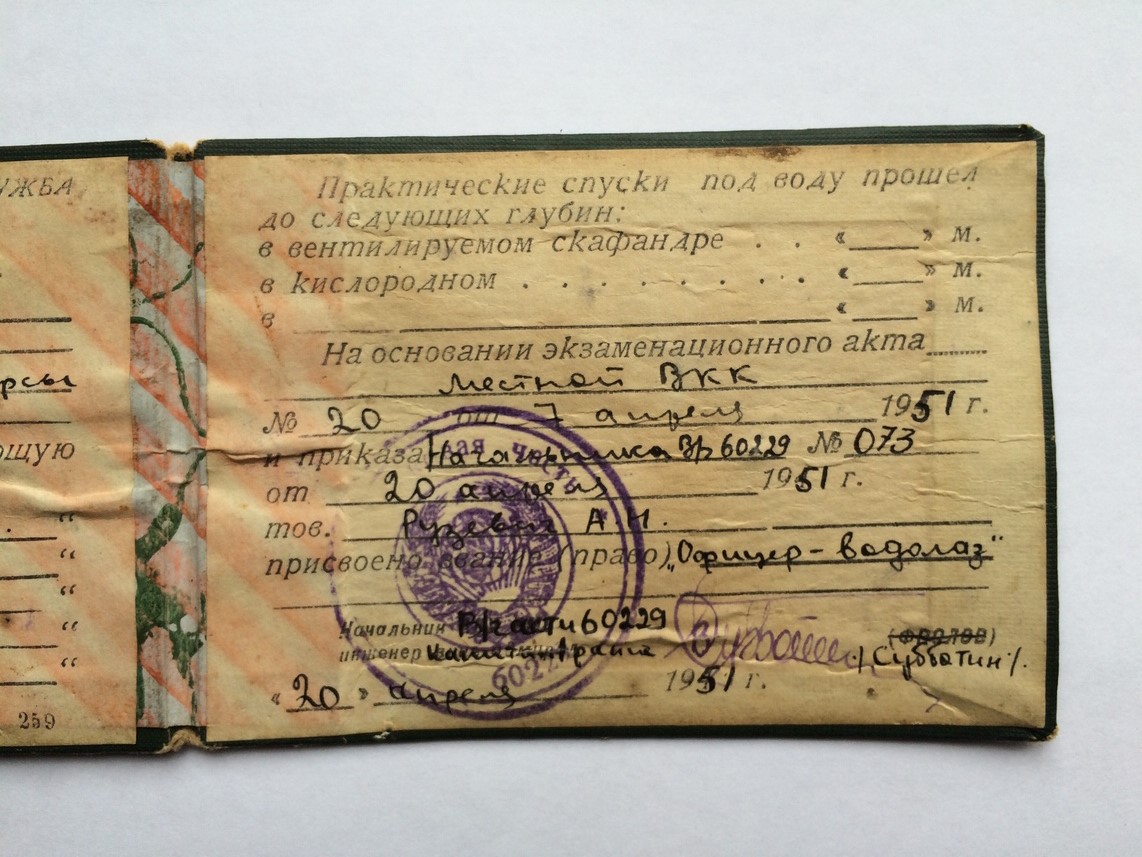 УЖБА
рсы
ощую
“
“
“
“
“
259
Практические спуски под воду прошел
до следующих глубин:
в вентилируемом скафандре . . «____» м.
в кислородном . . . . . . . . «____» м.
в ____ «____» м.
На основании экзаменационного акта
местной ВКК
№ 20 от 7 апреля 1951 г.
и приказа Начальника В/ч 60229 № 073
от 20 апреля 1951 г.
тов. А. И.
присвоено звание (право) „Офицер-водолаз"
Начальник В/части 60229
инженер
(ФРОЛОВ)
/Субботин/.
«20» апреля 1951 г.
часть
60229